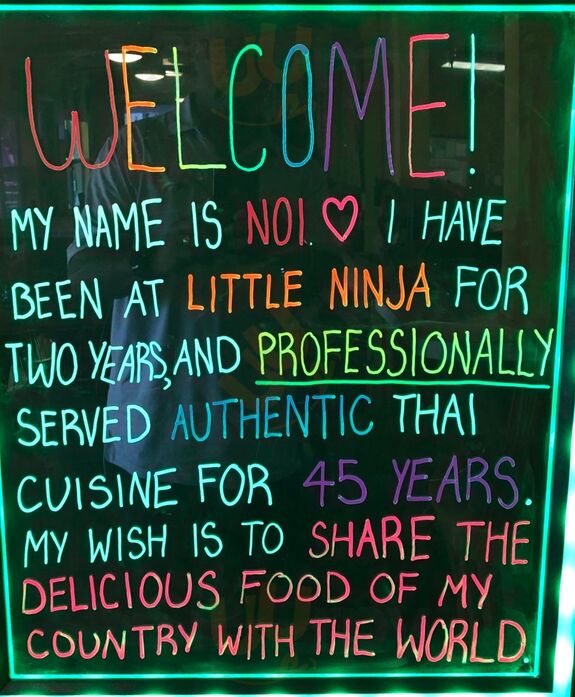 WELCOME!
MY NAME IS NOI. ♡ I HAVE
BEEN AT LITTLE NINJA FOR
TWO YEARS, AND PROFESSIONALLY
SERVED AUTHENTIC THAI
CUISINE FOR 45 YEARS.
MY WISH IS TO SHARE THE
DELICIOUS FOOD OF MY
COUNTRY WITH THE WORLD.